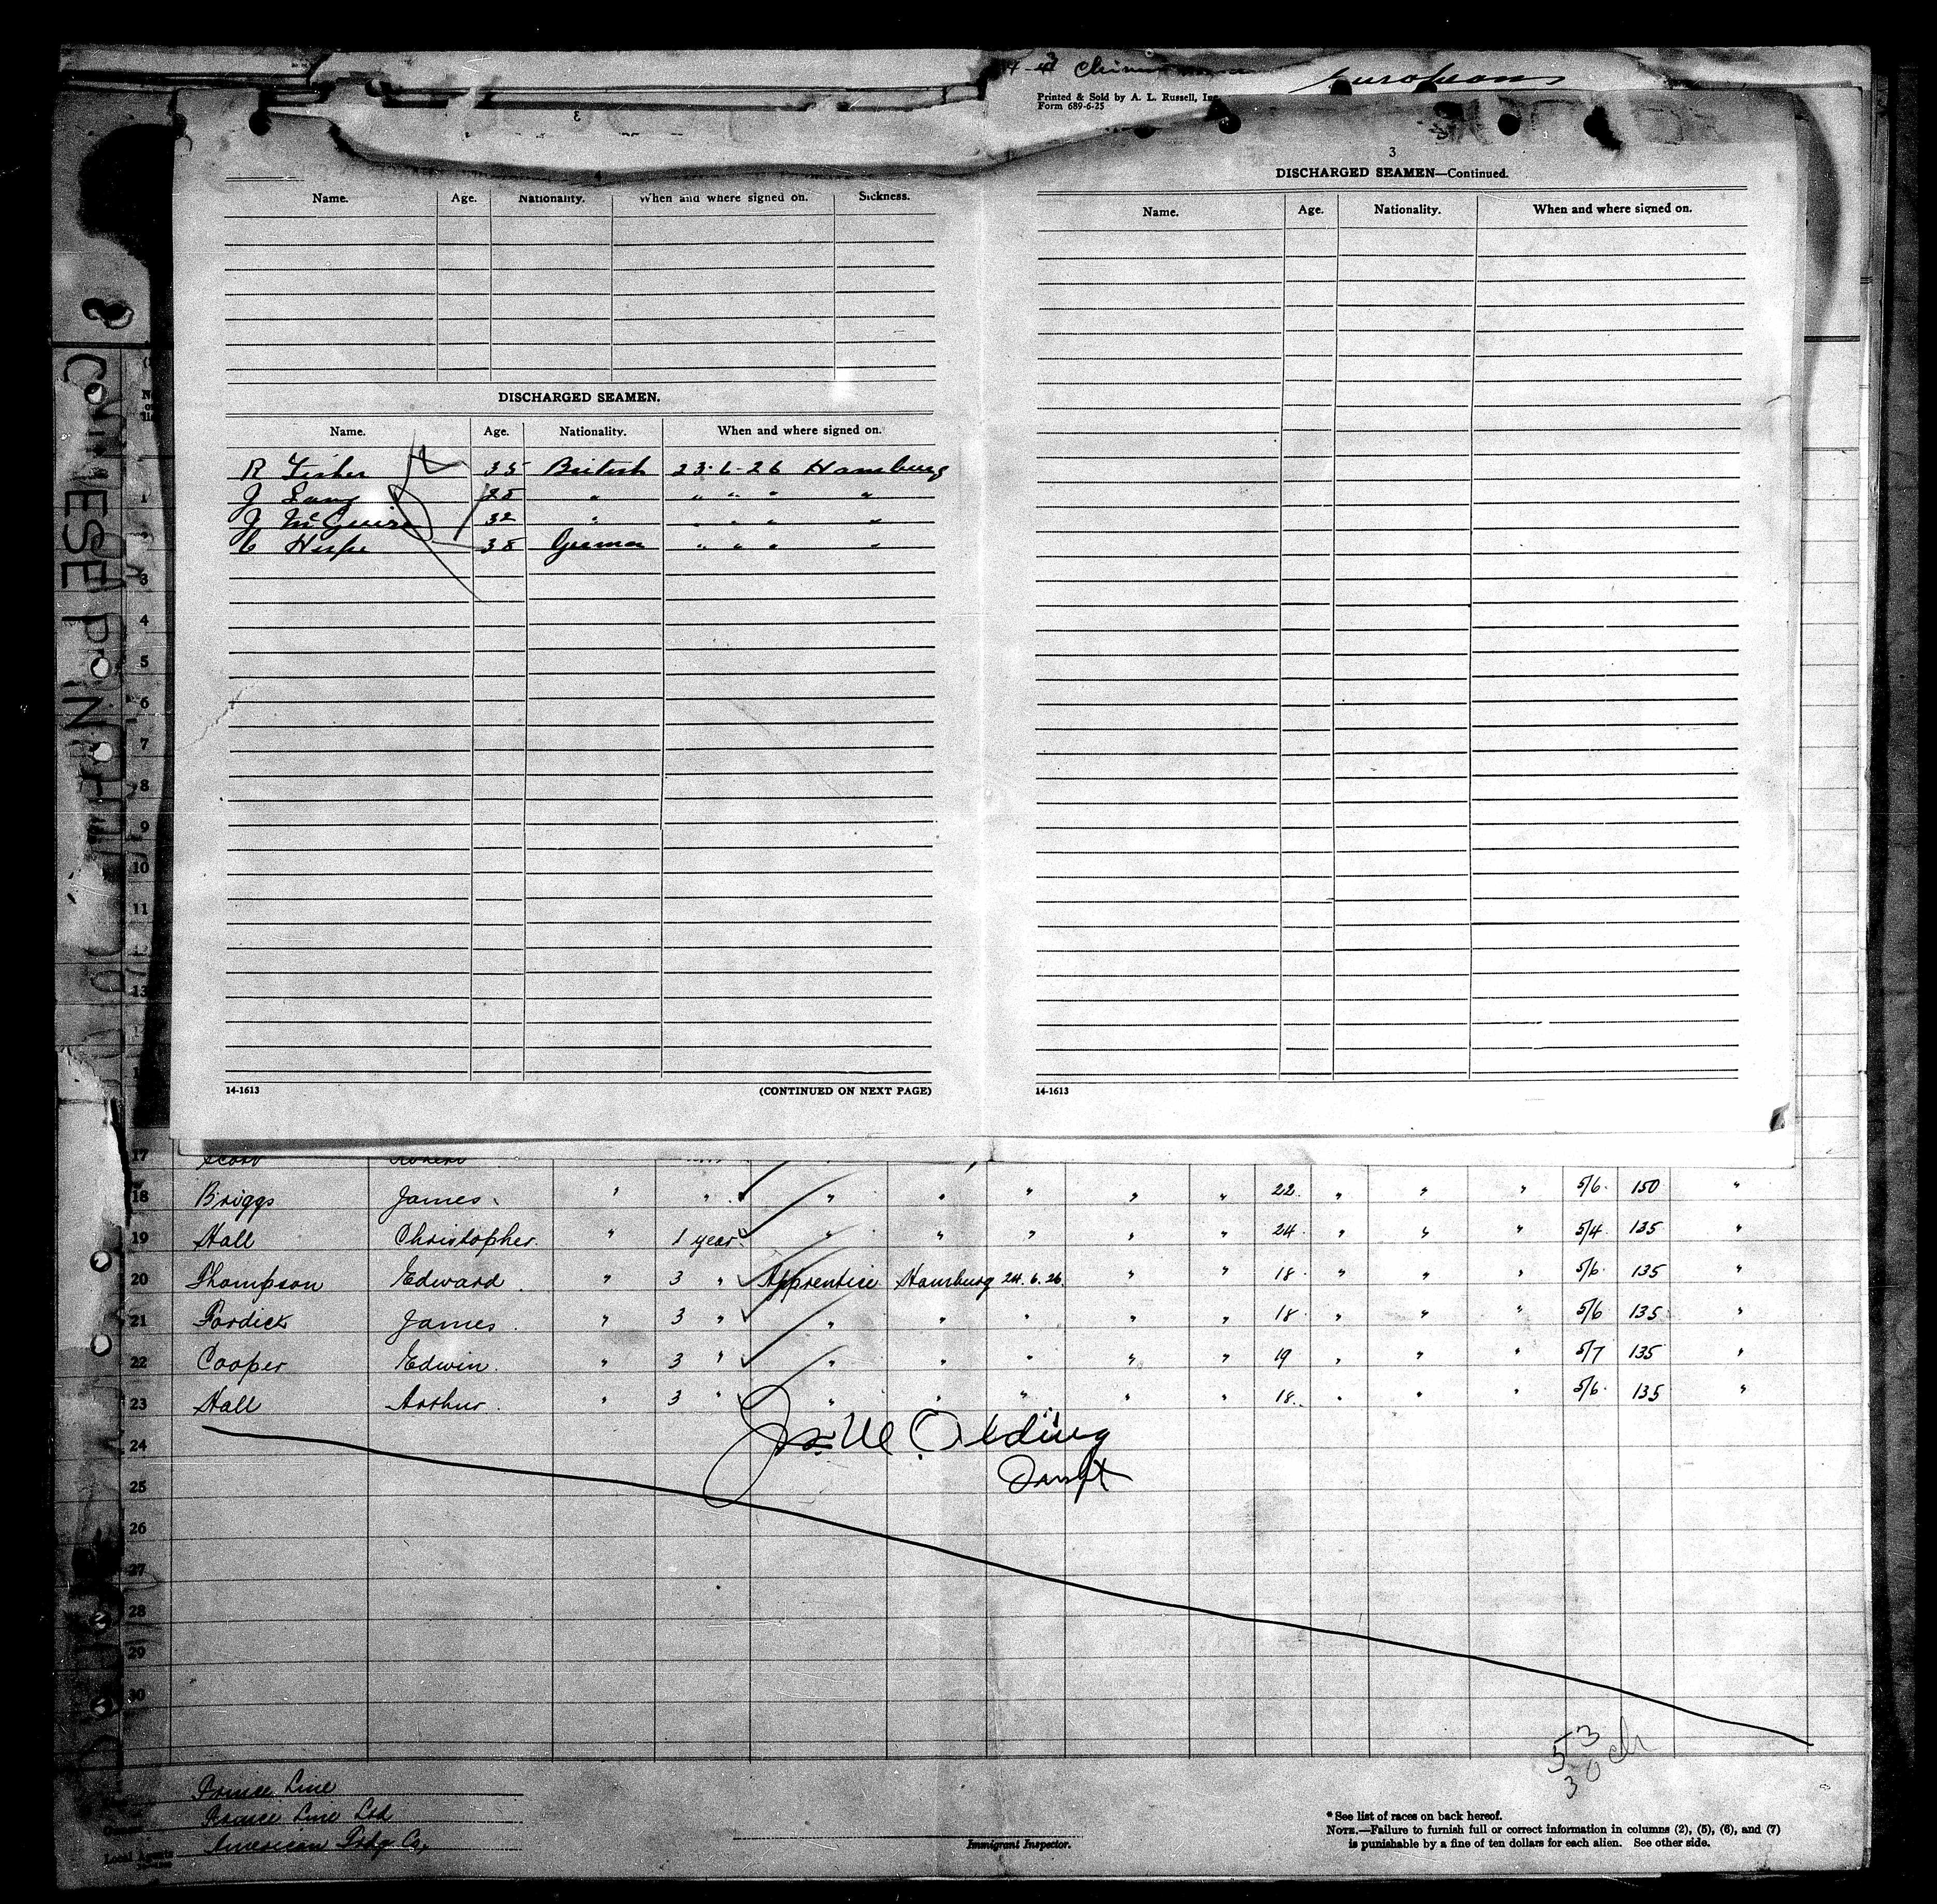 Europeans
Printed & Sold by A. L. Russell, Inc.
Form 689-6-25
Name. Age. Nationality. When and where signed on. Sickness.
DISCHARGED SEAMEN.
Name. Age. Nationality. When and where signed on.
R Fisher 35 British 23-6-26 Hamburg
J Lang 28 " " " " "
J McGuire 32 " " " " "
C 38 German " " " "
14-1613 (CONTINUED ON NEXT PAGE)
3
DISCHARGED SEAMEN—Continued.
Name. Age. Nationality. When and where signed on.
14-1613
CHINESE
1
3
4
5
6
7
8
9
10
11
13
17 Scott Robert
18 Briggs James " " " " " " " 22 " " " 5/6 150 "
19 Hall Christopher " 1 year " " " " " 24 " " " 5/4 135 "
20 Thompson Edward " 3 " Apprentice Hamburg 24.6.26 " " 18 " " " 5/6 135 "
21 Fordick James " 3 " " " " " " 18 " " " 5/6 135 "
22 Cooper Edwin " 3 " " " " " " 19 " " " 5/7 135 "
23 Hall Arthur " 3 " " " " " " 18 " " " 5/6 135 "
24
25
26
27
28
29
30
53
30 ch
Prince Line
Prince Line Ltd
Local Agents American Co.
Immigrant Inspector.
* See list of races on back hereof.
NOTE.—Failure to furnish full or correct information in columns (2), (5), (6), and (7)
is punishable by a fine of ten dollars for each alien. See other side.